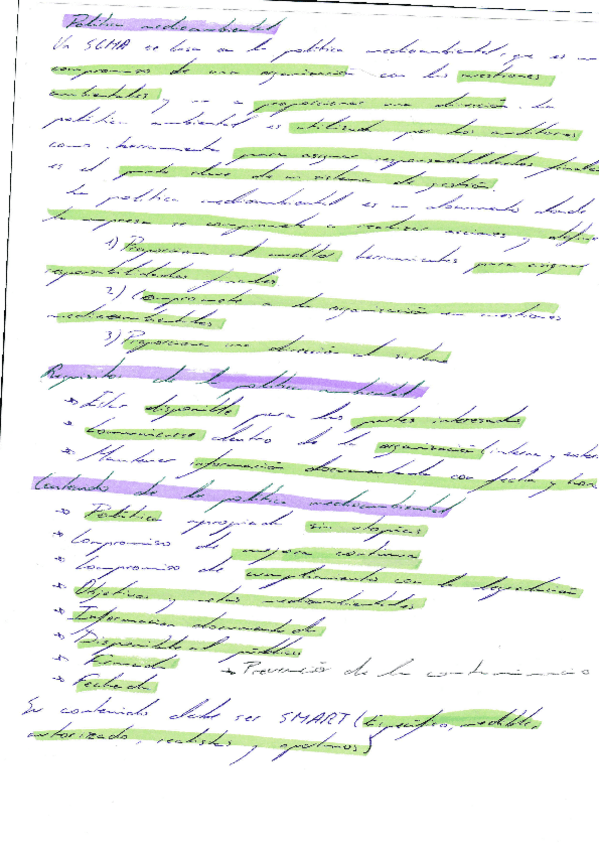 Política medioambiental
Un SGMA se basa en la política medioambiental, que es un
compromiso de una organización con las cuestiones
ambientales y va a proporcionar una dirección. La
política ambiental es utilizada por los auditores
como herramienta para asignar responsabilidades finales
es el punto clave de un sistema de gestión.
La política medioambiental es un documento donde
la empresa se compromete a realizar acciones y
1) Proporciona al auditor herramientas para asignar
responsabilidades finales
2) Compromete a la organización en cuestiones
medioambientales
3) Proporciona una dirección al sistema
Requisitos de la política ambiental
→ Estar disponible para las partes interesadas
→ Comunicarse dentro de la organización (interna y
→ Mantener información documentada con fecha y
Contenido de la política medioambiental
→ Política apropiada sin utopías
→ Compromiso de mejora continua
→ Compromiso de cumplimiento con la legislación
→ Objetivos y metas medioambientales
→ Información documentada
→ Disponible al público
→ Firmada → Prevención de la contaminació
→ Fechada
Su contenido debe ser SMART (Específico, medibles,
autorizado, realistas y